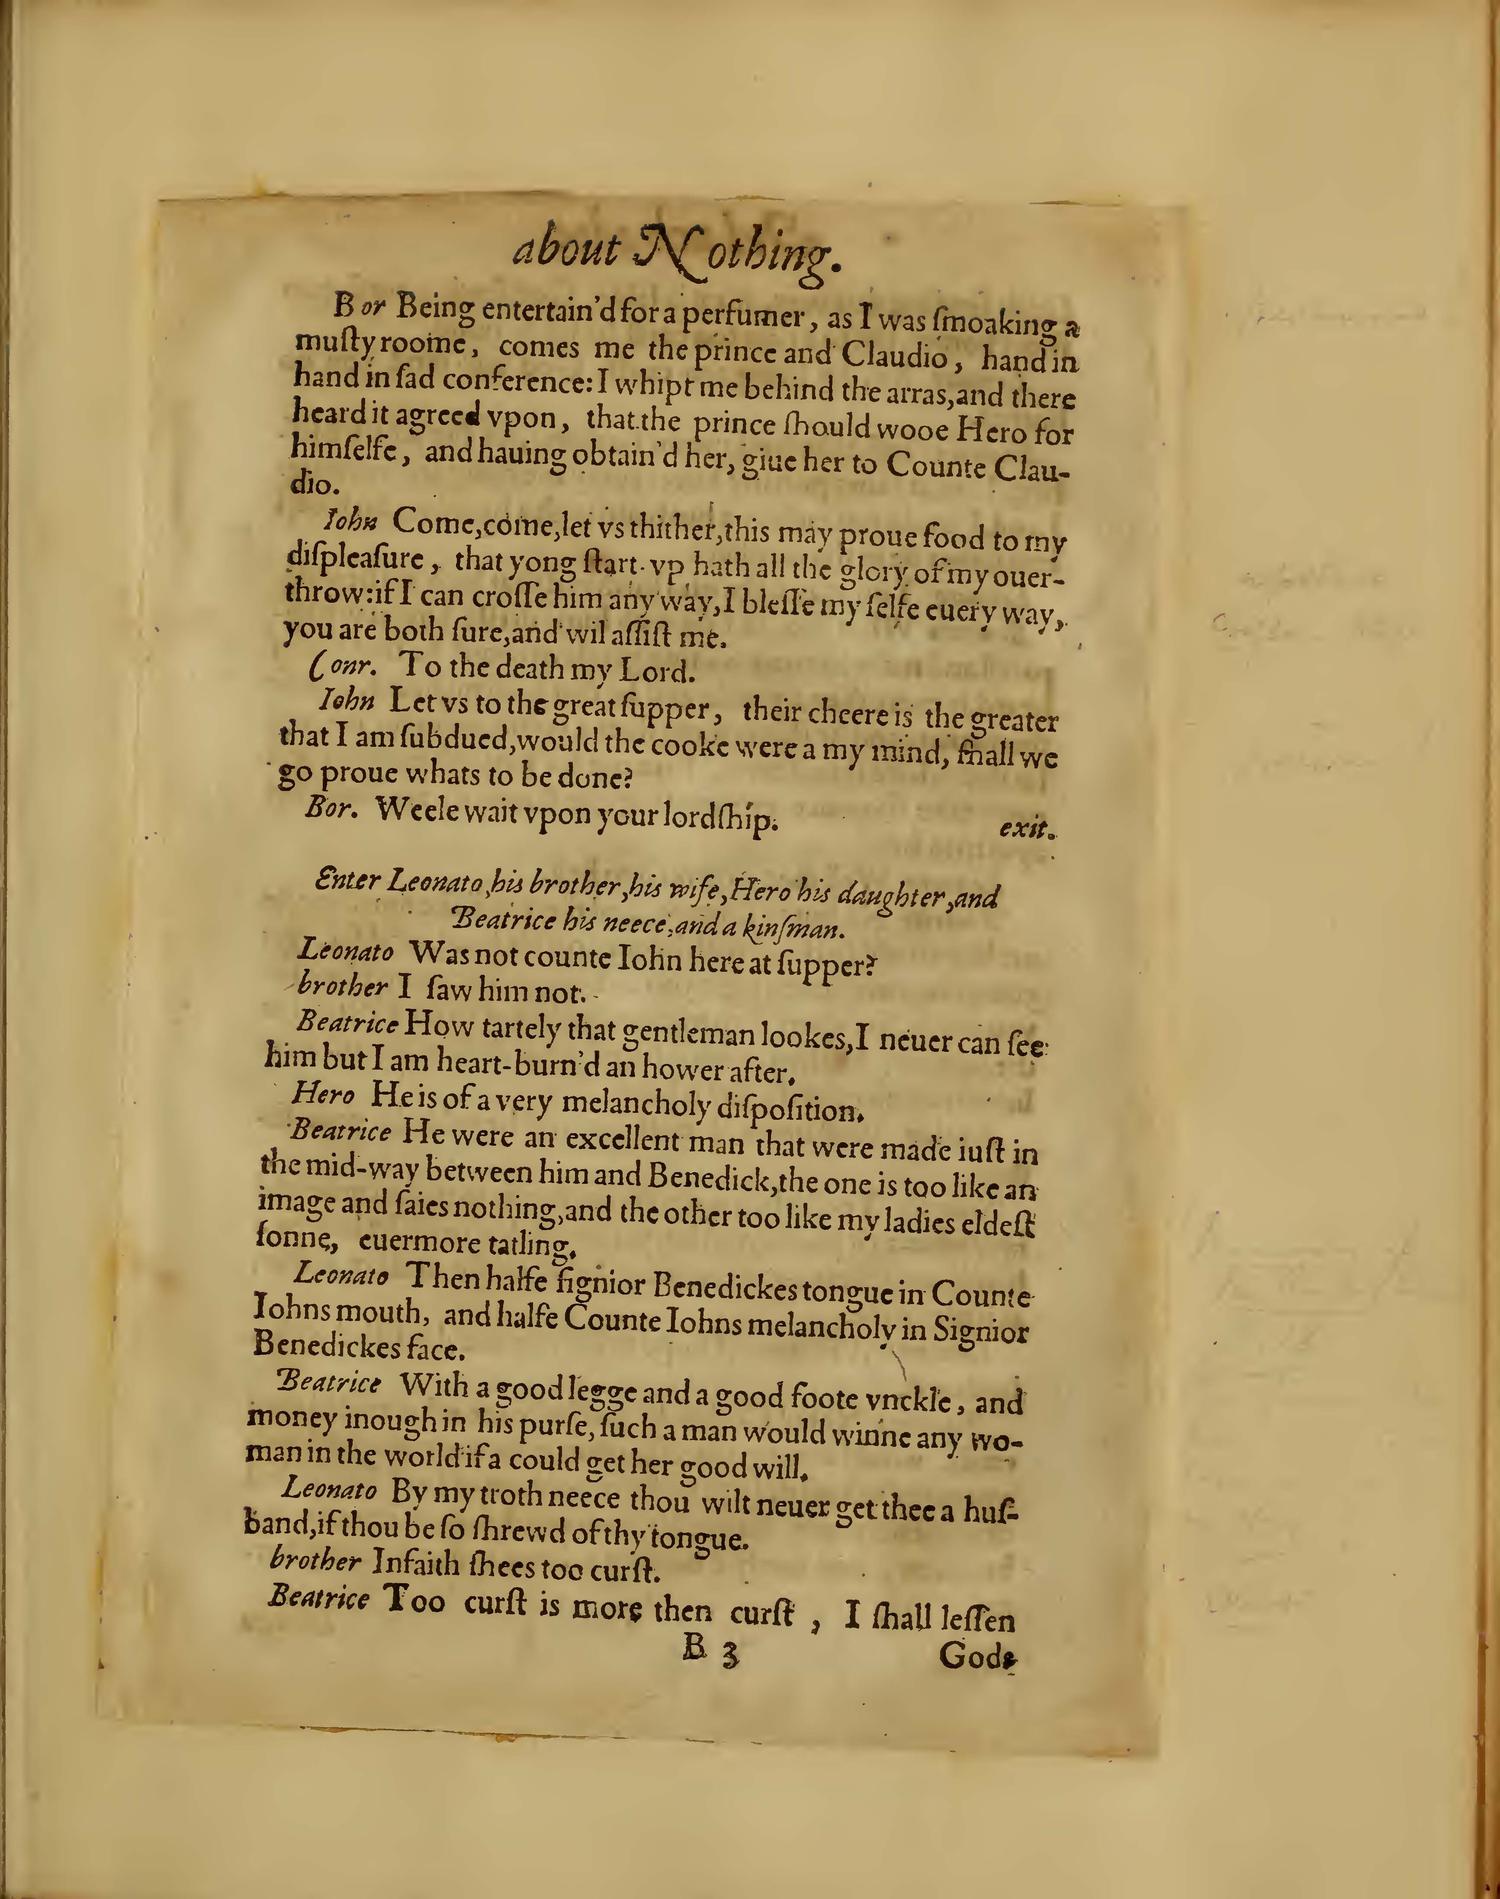 about Nothing.
Bor Being entertain'd for a perfumer, as I was ſmoaking a
muſty roome, comes me the prince and Claudio, hand in
hand in ſad conference: I whipt me behind the arras, and there
heard it agreed vpon, that the prince ſhould wooe Hero for
himſelfe, and hauing obtain'd her, giue her to Counte Clau-
dio.
Iohn Come, come, let vs thither, this may proue food to my
diſpleaſure, that yong ſtart-vp hath all the glory of my ouer-
throw: if I can croſſe him any way, I bleſſe my ſelfe euery way,
you are both ſure, and wil aſſiſt me.
Conr. To the death my Lord.
Iohn Let vs to the great ſupper, their cheere is the greater
that I am ſubdued, would the cooke were a my mind, ſhall we
go proue whats to be done?
Bor. Weele wait vpon your lordſhip. exit.
Enter Leonato, his brother, his wife, Hero his daughter, and
Beatrice his neece, and a kinſman.
Leonato Was not counte Iohn here at ſupper?
brother I ſaw him not.
Beatrice How tartely that gentleman lookes, I neuer can ſee
him but I am heart-burn'd an hower after.
Hero He is of a very melancholy diſpoſition.
Beatrice He were an excellent man that were made iuſt in
the mid-way between him and Benedick, the one is too like an
image and ſaies nothing, and the other too like my ladies eldeſt
ſonne, euermore tatling.
Leonato Then halfe ſignior Benedickes tongue in Counte
Iohns mouth, and halfe Counte Iohns melancholy in Signior
Benedickes face.
Beatrice With a good legge and a good foote vnckle, and
money inough in his purſe, ſuch a man would winne any wo-
man in the world if a could get her good will.
Leonato By my troth neece thou wilt neuer get thee a huſ-
band, if thou be ſo ſhrewd of thy tongue.
brother Infaith ſhees too curſt.
Beatrice Too curſt is more then curſt, I ſhall leſſen
B 3 Gods